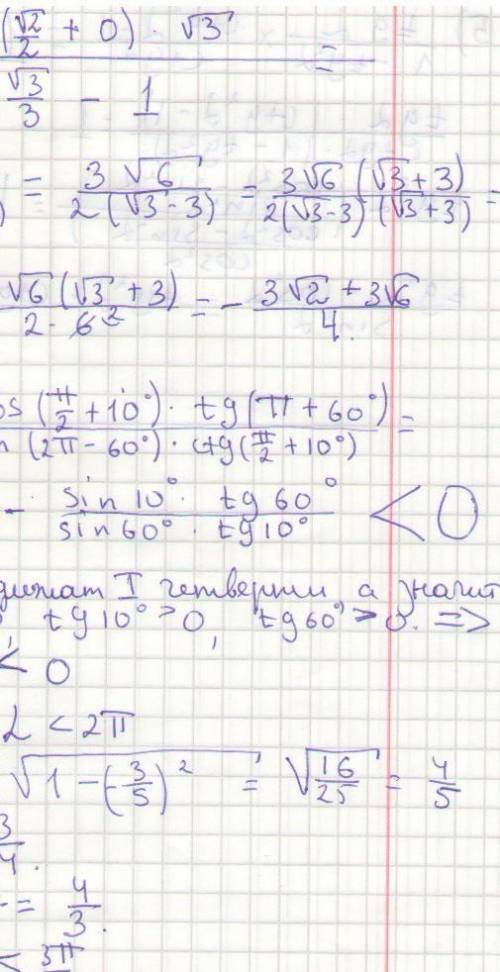 (√2/2 + 0) · √3
=
√3/3 - 1
= 3√6 / 2(√3-3) = 3√6 (√3+3) / 2(√3-3)(√3+3) =
√6(√3+3) / 2·6² = - 3√2+3√6 / 4
os(π/2+10°)· tg(π+60°) / n(2π-60°)·ctg(π/2+10°) =
- sin10°· tg60° / sin60°· tg10° < 0
лежат I четверти, а значит
, tg10°>0, tg60°>0. =>
< 0
α < 2π
√1-(-3/5)² = √16/25 = 4/5
3/4.
= 4/3.
< 3π